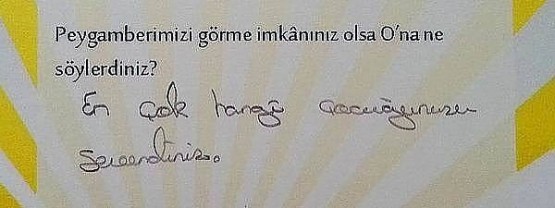 Peygamberimizi görme imkânınız olsa O'na ne
söylerdiniz?
En çok hangi çocuğunuzu
severdiniz.